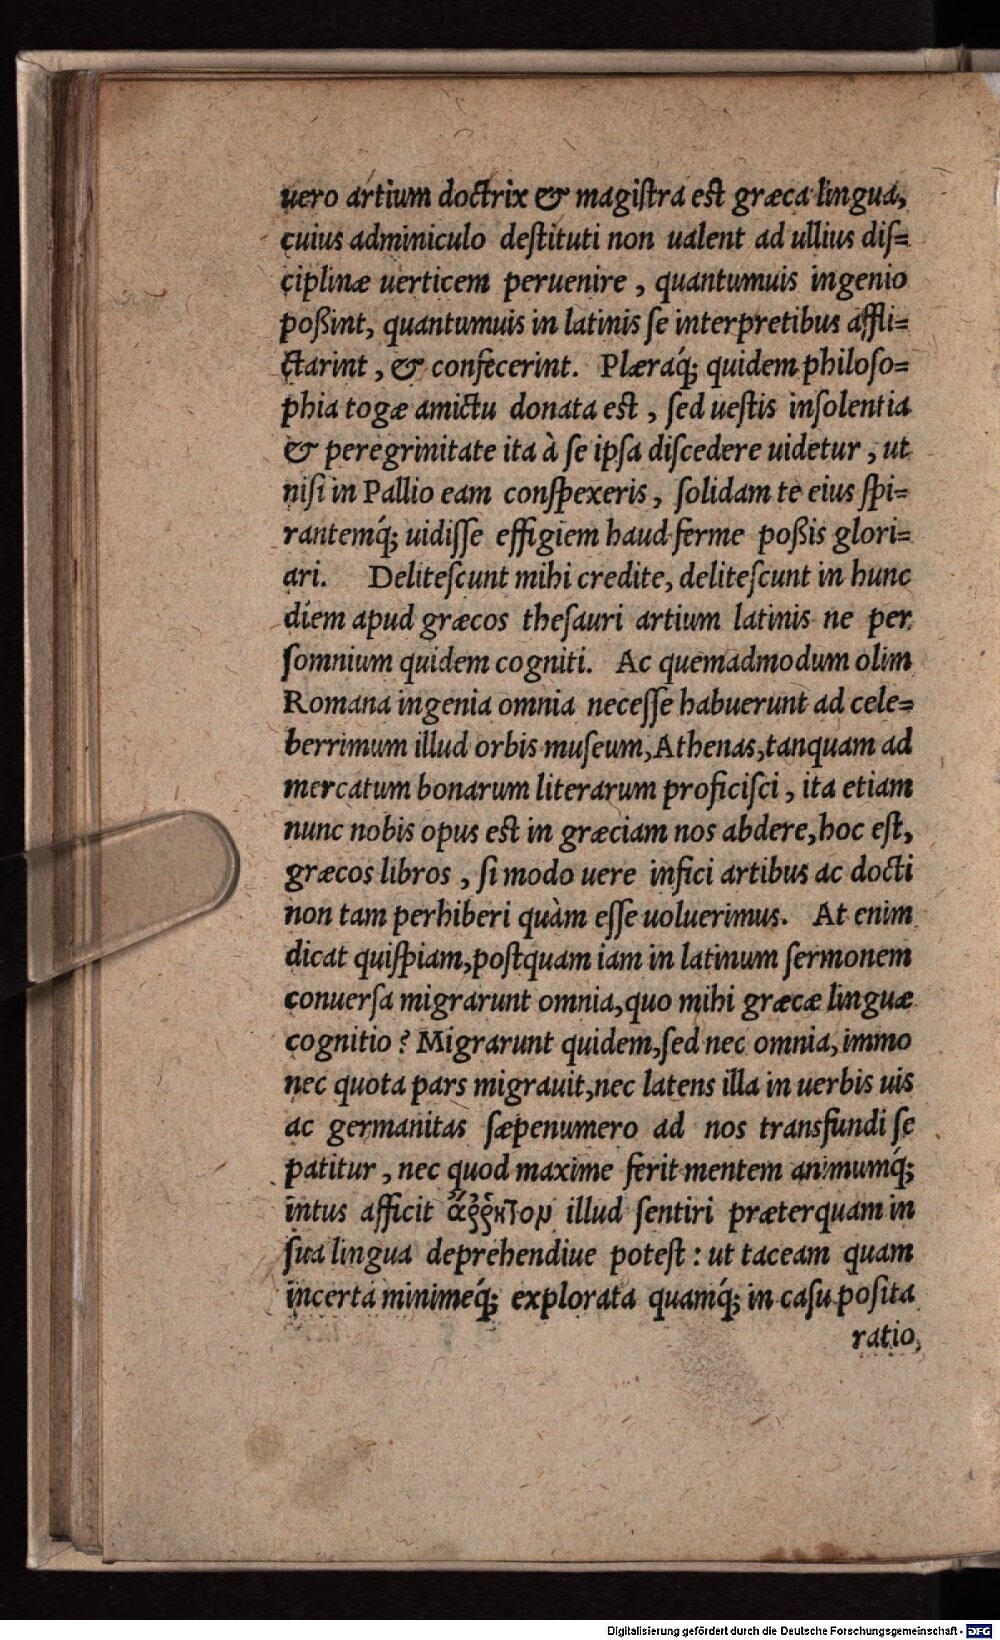 uero artium doctrix & magiſtra eſt græca lingua,
cuius adminiculo deſtituti non ualent ad ullius diſ=
ciplinæ uerticem peruenire , quantumuis ingenio
poßint, quantumuis in latinis ſe interpretibus affli=
ctarint , & confecerint. Plæraq́; quidem philoſo=
phia togæ amictu donata eſt , ſed ueſtis inſolentia
& peregrinitate ita à ſe ipſa diſcedere uidetur , ut
niſi in Pallio eam conſpexeris , ſolidam te eius ſpi=
rantemq́; uidiſſe effigiem haud ferme poßis glori=
ari. Deliteſcunt mihi credite, deliteſcunt in hunc
diem apud græcos theſauri artium latinis ne per
ſomnium quidem cogniti. Ac quemadmodum olim
Romana ingenia omnia neceſſe habuerunt ad cele=
berrimum illud orbis muſeum,Athenas,tanquam ad
mercatum bonarum literarum proficiſci , ita etiam
nunc nobis opus eſt in græciam nos abdere,hoc eſt,
græcos libros , ſi modo uere infici artibus ac docti
non tam perhiberi quàm eſſe uoluerimus. At enim
dicat quiſpiam,poſtquam iam in latinum ſermonem
conuerſa migrarunt omnia,quo mihi græcæ linguæ
cognitio ? Migrarunt quidem,ſed nec omnia, immo
nec quota pars migrauit,nec latens illa in uerbis uis
ac germanitas ſæpenumero ad nos transfundi ſe
patitur , nec quod maxime ferit mentem animumq́;
intus afficit ἄῤῥηκτον illud ſentiri præterquam in
ſua lingua deprehendiue poteſt : ut taceam quam
incerta minimeq́; explorata quamq́; in caſu poſita
ratio,
Digitalisierung gefördert durch die Deutsche Forschungsgemeinschaft - DFG